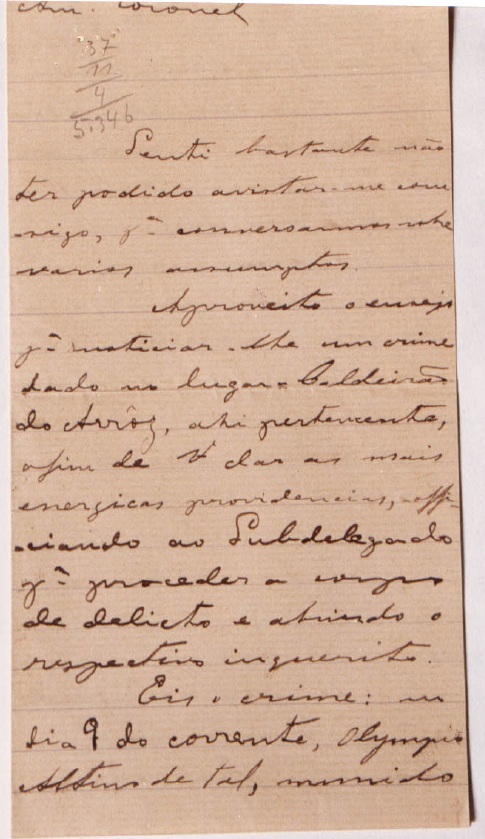 Am. Coronel
"37"
11
4
5.946
Senti bastante não
ter podido avistar-me com
-sigo, pª conversarmos sobre
varios assumptos.
Aproveito o ensejo
pª noticiar-lhe um crime
dado no lugar Caldeirão
do Arrôz, ahi pertencente,
afim de V dar as mais
energicas providencias, offi-
-ciando ao Subdelegado
pª proceder a corpo
de delicto e abrindo o
respectivo inquerito.
Eis o crime: no
dia 9 do corrente, Olympio
Altino de tal, munido